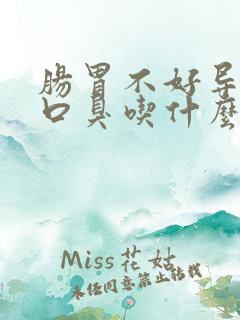 肠胃不好导
口臭喫什麽
Miss花姑
未经同意禁止转载